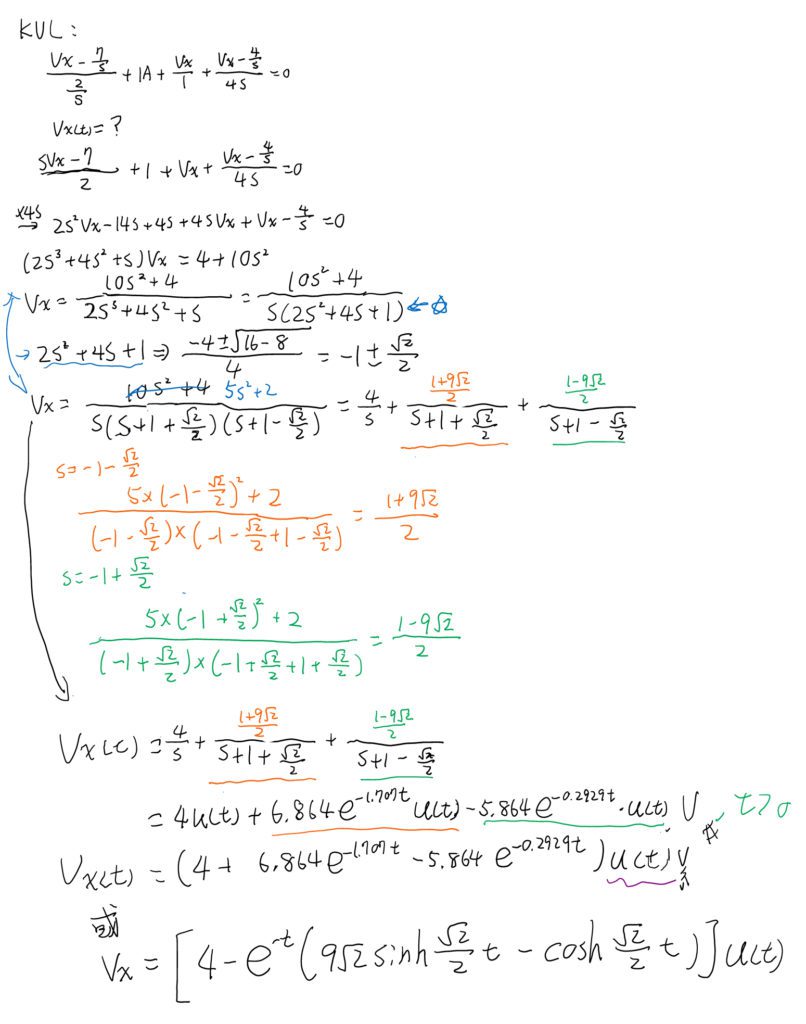 KVL:
(Vx - 7/s)/(2/s) + 1A + Vx/1 + (Vx - 4/s)/(4s) = 0
Vx(t) = ?
(sVx - 7)/2 + 1 + Vx + (Vx - 4/s)/(4s) = 0
×4s → 2s²Vx - 14s + 4s + 4sVx + Vx - 4/s = 0
(2s³ + 4s² + s)Vx = 4 + 10s²
Vx = (10s² + 4)/(2s³ + 4s² + s) = (10s² + 4)/(s(2s² + 4s + 1)) ←☆
→ 2s² + 4s + 1 ⇒ (-4 ± √(16 - 8))/4 = -1 ± √2/2
Vx = (10s² + 4 5s² + 2)/(s(s + 1 + √2/2)(s + 1 - √2/2)) = 4/s + ((1+9√2)/2)/(s + 1 + √2/2) + ((1-9√2)/2)/(s + 1 - √2/2)
s = -1 - √2/2
(5×(-1 - √2/2)² + 2)/((-1 - √2/2)×(-1 - √2/2 + 1 - √2/2)) = (1+9√2)/2
s = -1 + √2/2
(5×(-1 + √2/2)² + 2)/((-1 + √2/2)×(-1 + √2/2 + 1 + √2/2)) = (1-9√2)/2
Vx(t) = 4/s + ((1+9√2)/2)/(s + 1 + √2/2) + ((1-9√2)/2)/(s + 1 - √2/2)
= 4u(t) + 6.864e^(-1.707t) u(t) - 5.864e^(-0.2929t)·u(t) V , t>0
Vx(t) = (4 + 6.864e^(-1.707t) - 5.864e^(-0.2929t))u(t) V
或
Vx = [4 - e^(-t)(9√2 sinh √2/2 t - cosh √2/2 t)]u(t)